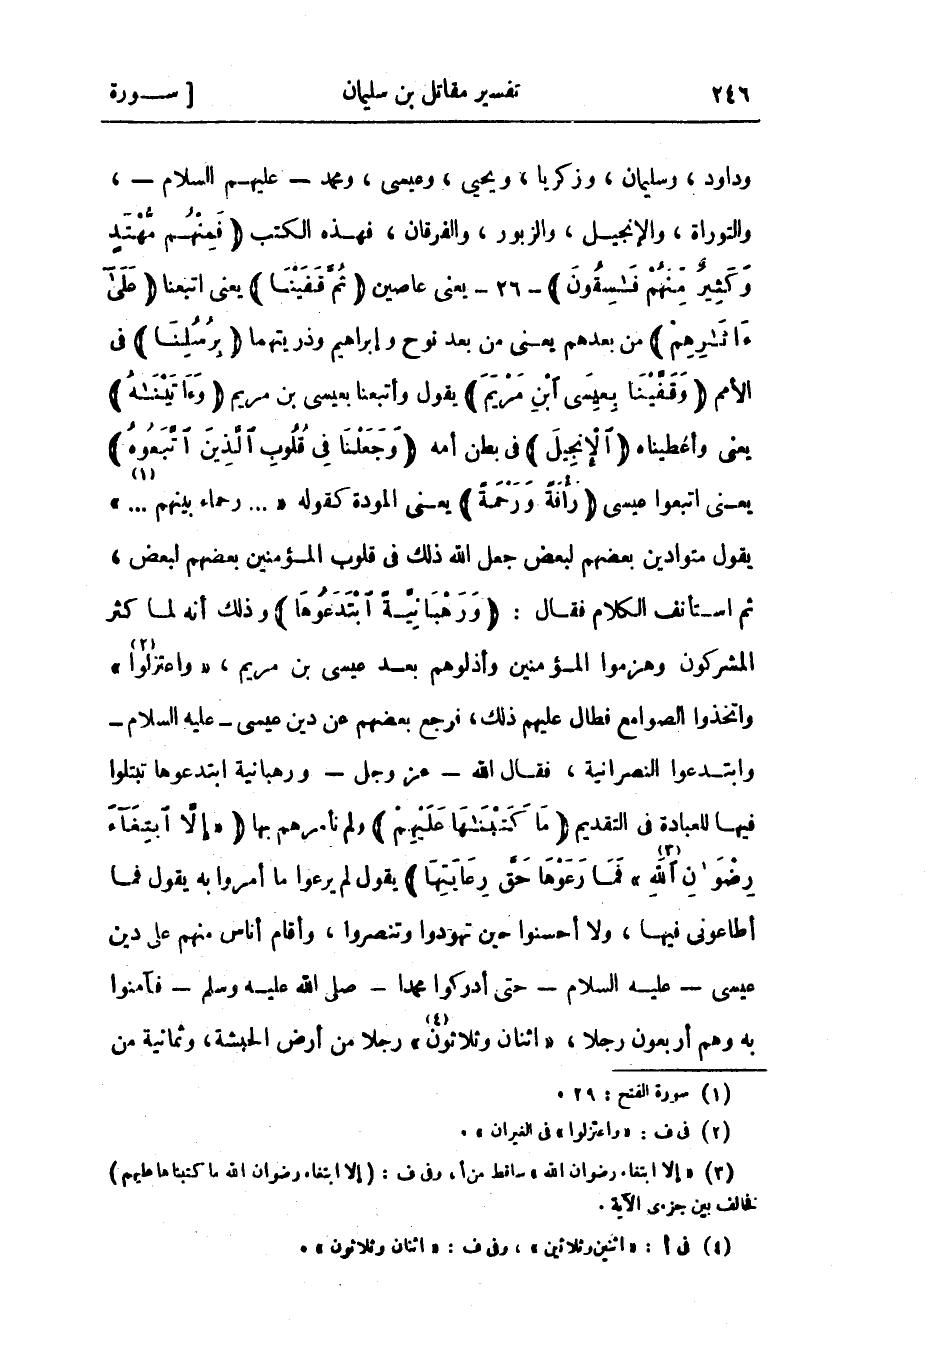 ٢٤٦ تفسير مقاتل بن سليمان [ ســـورة
وداود ، وسليمان ، وزكريا ، ويحيى ، وعيسى ، ومحمد — عليهم السلام — ،
والتوراة ، والإنجيل ، والزبور ، والفرقان ، فهذه الكتب ( فَمِنْهُم مُّهْتَدٍ
وَكَثِيرٌ مِّنْهُمْ فَـٰسِقُونَ ) - ٢٦ - يعنى عاصين ( ثُمَّ قَفَّيْنَا ) يعنى اتبعنا ( عَلَىٰٓ
ءَاثَـٰرِهِمْ ) من بعدهم يعنى من بعد نوح وإبراهيم وذريتهما ( بِرُسُلِنَا ) فى
الأمم ( وَقَفَّيْنَا بِعِيسَى ٱبْنِ مَرْيَمَ ) يقول وأتبعنا بعيسى بن مريم ( وَءَاتَيْنَـٰهُ )
يعنى وأعطيناه ( ٱلْإِنجِيلَ ) فى بطن أمه ( وَجَعَلْنَا فِى قُلُوبِ ٱلَّذِينَ ٱتَّبَعُوهُ )
يعنى اتبعوا عيسى ( رَأْفَةً وَرَحْمَةً ) يعنى المودة كقوله « ... رحماء بينهم ... » (١)
يقول متوادين بعضهم لبعض جعل الله ذلك فى قلوب المؤمنين بعضهم لبعض ،
ثم استأنف الكلام فقال : ( وَرَهْبَانِيَّةً ٱبْتَدَعُوهَا ) وذلك أنه لما كثر
المشركون وهزموا المؤمنين وأذلوهم بعد عيسى بن مريم ، « واعتزلوا » (٢)
واتخذوا الصوامع فطال عليهم ذلك ، فرجع بعضهم عن دين عيسى - عليه السلام -
وابتدعوا النصرانية ، فقال الله — عز وجل — ورهبانية ابتدعوها تبتلوا
فيها للعبادة فى التقديم ( مَا كَتَبْنَـٰهَا عَلَيْهِمْ ) ولم نأمرهم بها ( « إِلَّا ٱبْتِغَآءَ
رِضْوَٰنِ ٱللَّهِ » (٣) فَمَا رَعَوْهَا حَقَّ رِعَايَتِهَا ) يقول لم يرعوا ما أمروا به يقول فما
أطاعونى فيها ، ولا أحسنوا حين تهودوا وتنصروا ، وأقام أناس منهم على دين
عيسى — عليه السلام — حتى أدركوا محمدا — صلى الله عليه وسلم — فآمنوا
به وهم أربعون رجلا ، « اثنان وثلاثون » (٤) رجلا من أرض الحبشة ، وثمانية من
(١) سورة الفتح : ٢٩ .
(٢) فى ف : « واعتزلوا » فى الغيران » .
(٣) « إلا ابتغاء رضوان الله » ساقط من أ ، وفى ف : ( إلا ابتغاء رضوان الله ما كتبناها عليهم )
نخالف بين جزءى الآية .
(٤) فى أ : « اثنين وثلاثين » ، وفى ف : « اثنان وثلاثون » .